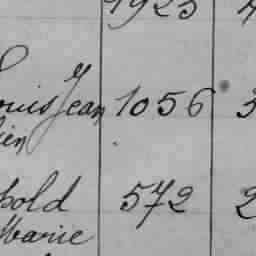 1923
ouis Jean 1056 3
ien
pold 572 2
Marie